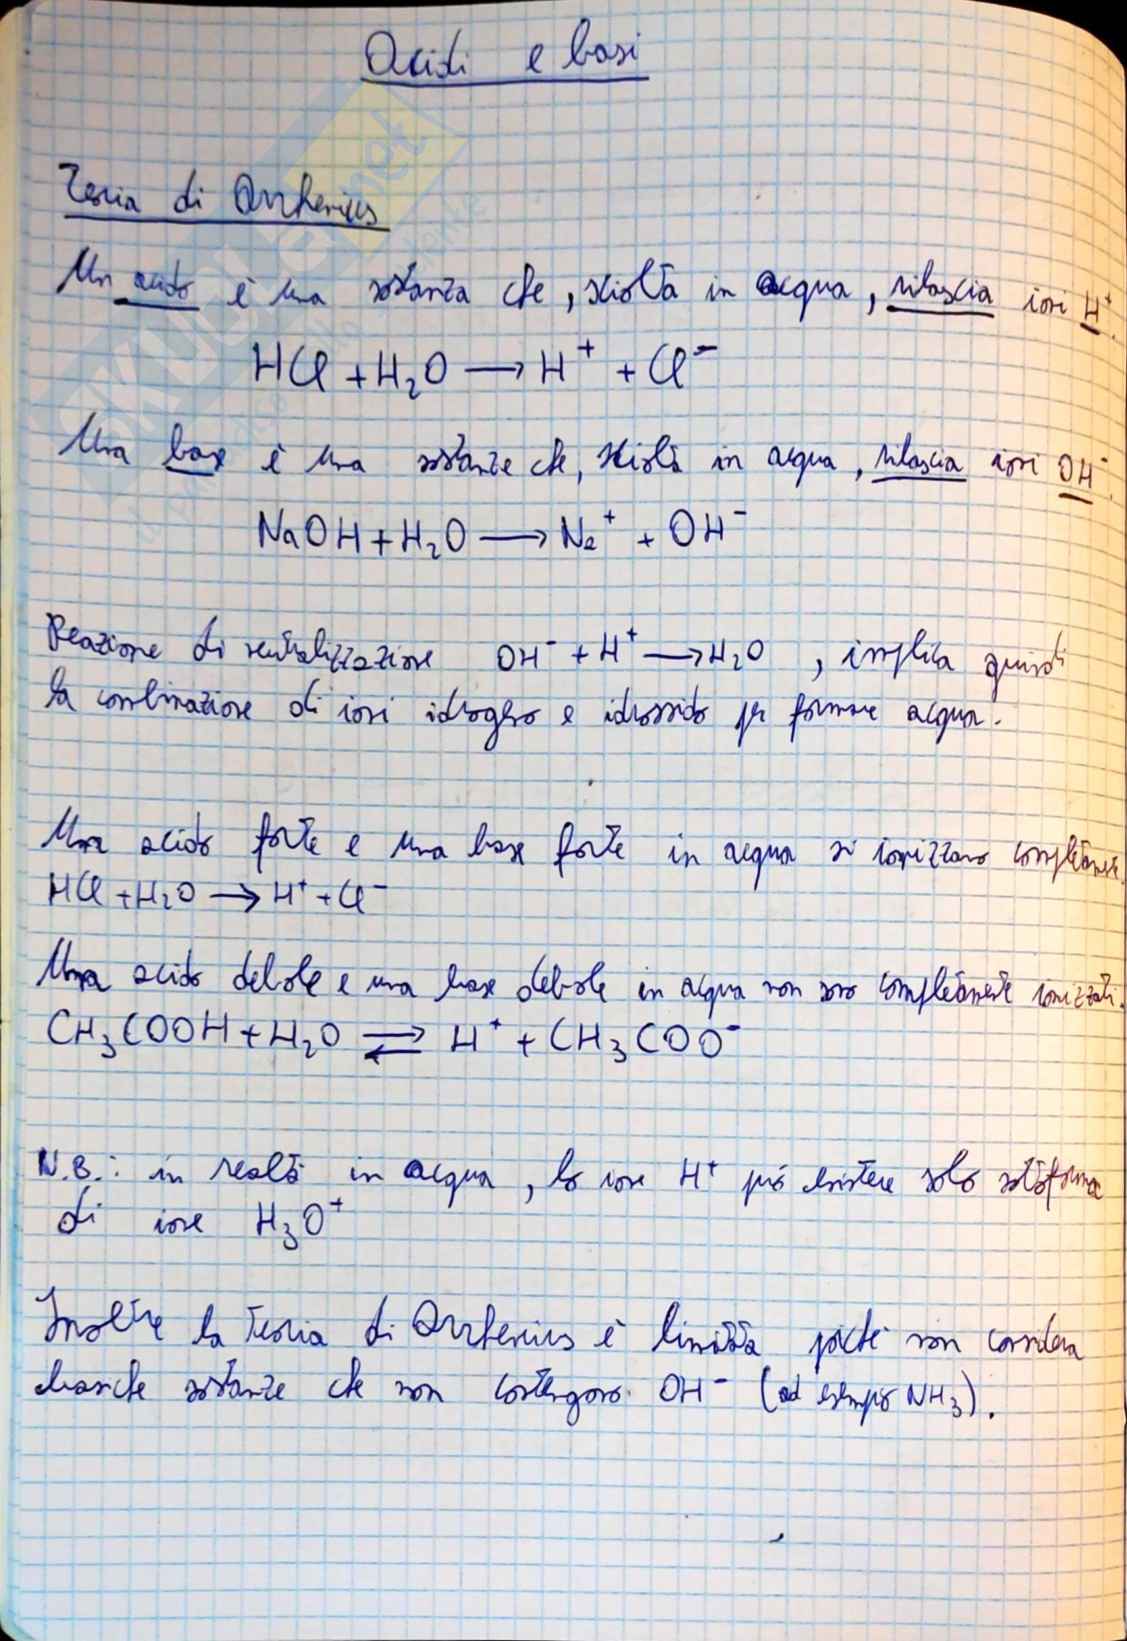 Acidi e basi
Teoria di Arrhenius
Un acido è una sostanza che, sciolta in acqua, rilascia ioni H⁺.
HCl + H₂O → H⁺ + Cl⁻
Una base è una sostanza che, sciolta in acqua, rilascia ioni OH⁻.
NaOH + H₂O → Na⁺ + OH⁻
Reazione di neutralizzazione OH⁻ + H⁺ → H₂O , implica quindi
la combinazione di ioni idrogeno e idrossido per formare acqua.
Una acido forte e una base forte in acqua si ionizzano completamente.
HCl + H₂O → H⁺ + Cl⁻
Una acido debole e una base debole in acqua non sono completamente ionizzati.
CH₃COOH + H₂O ⇌ H⁺ + CH₃COO⁻
N.B.: in realtà in acqua, lo ione H⁺ può esistere solo sottoforma
di ione H₃O⁺
Inoltre la teoria di Arrhenius è limitata poiché non considera
basiche sostanze che non contengono OH⁻ (ad esempio NH₃).
SKUOLA.net